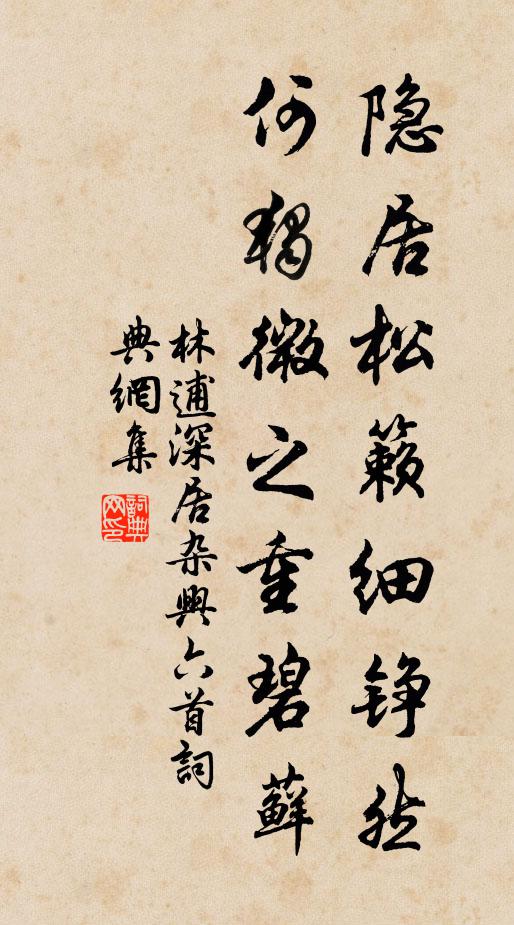 隐居松籁细铮然
何独微之重碧蘚
林逋深居杂興六首詞
典網集
詞典网印